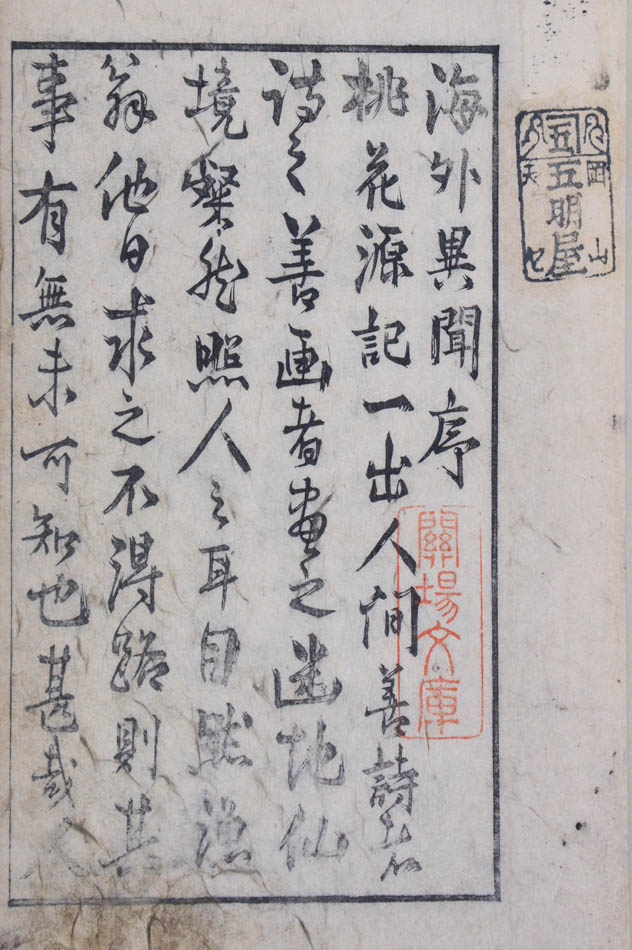 五明屋
海外異聞序
桃花源記一出人間善詩者
詩之善画者畫之地仙
境粲然照人之耳目然漁
翁他日求之不得路則其
事有無未可知也甚哉人
關場文庫